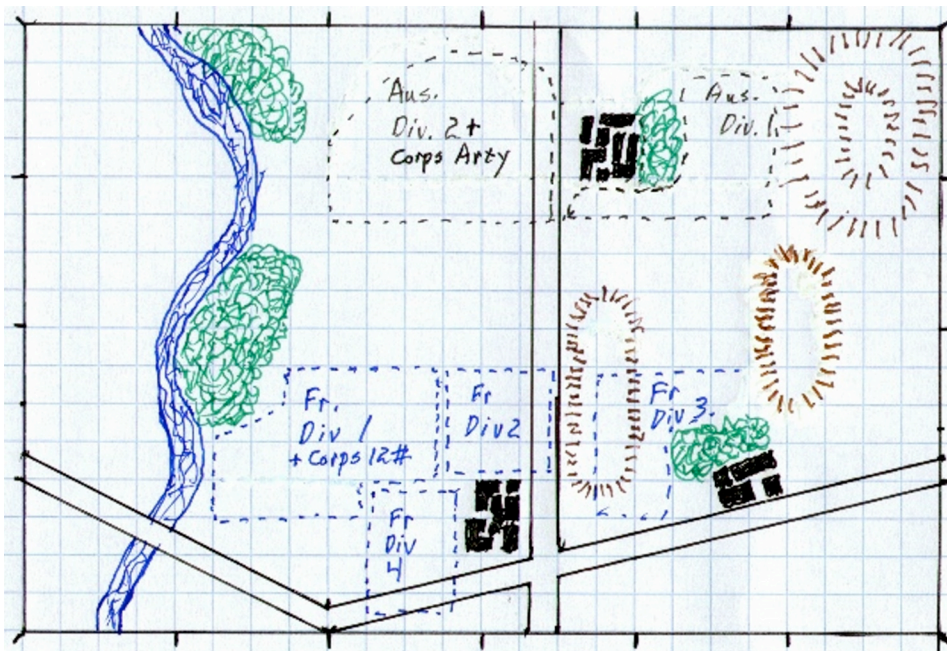 Aus.
Div. 2 +
Corps Arty
Aus.
Div. 1
Fr.
Div 1
+ Corps 12#
Fr
Div 2
Fr
Div 3.
Fr
Div
4